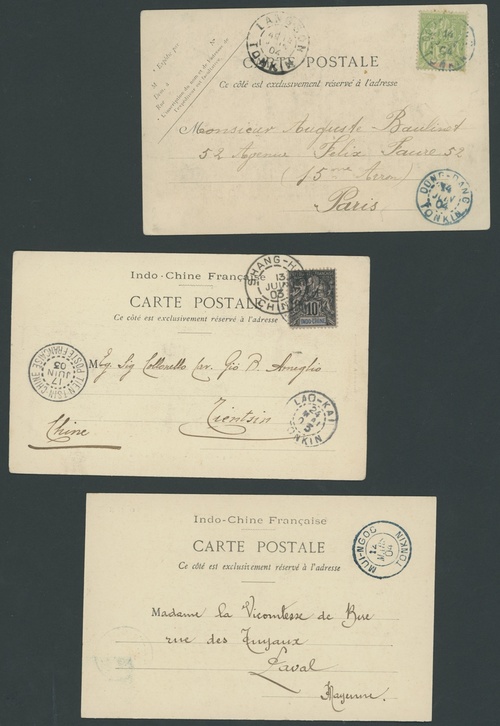 LANG-SON
04
TONKIN
CARTE POSTALE
Ce côté est exclusivement réservé à l'adresse
Monsieur Auguste
52 Avenue Félix Faure 52
(15me Arron)
Paris
DONG-DANG
14
JANV
04
TONKIN
Indo-Chine Française
CARTE POSTALE
Ce côté est exclusivement réservé à l'adresse
SHANG-HAI
13
JUIN
03
CHINE
10
INDO-CHINE
TIEN-TSIN-CHINE
17
JUIN
03
POSTE FRANCAISE
Sig
Tientsin
Chine
LAO-KAI
TONKIN
Indo-Chine Française
CARTE POSTALE
Ce côté est exclusivement réservé à l'adresse
MUI-NGOC
04
TONKIN
Madame la Vicomtesse de
rue des Tuyaux
Laval
Mayenne